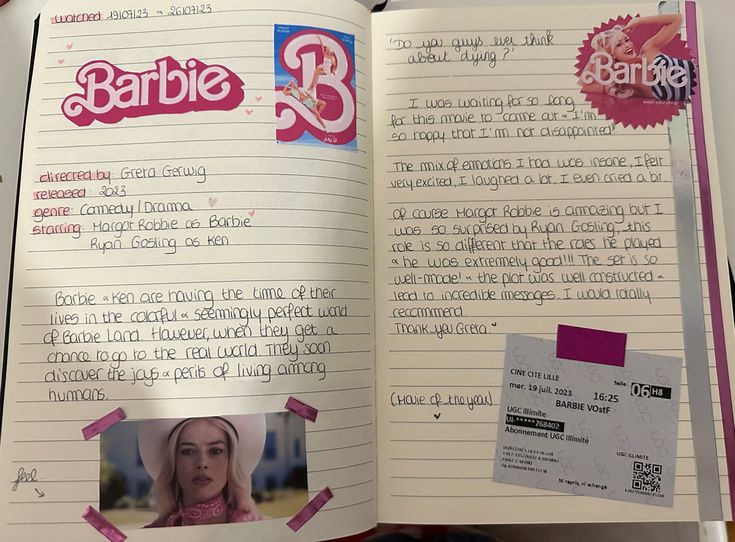 watched: 19/07/23 & 26/07/23
Barbie
B
July 21
directed by: Greta Gerwig
released: 2023
genre: Comedy/Drama
starring: Margot Robbie as Barbie
Ryan Gosling as Ken
Barbie & Ken are having the time of their
lives in the colorful & seemingly perfect world
of Barbie Land. However, when they get a
chance to go to the real world. They soon
discover the joys & perils of living among
humans.
feel
'Do you guys ever think
about dying?'
Barbie
I was waiting for so long
for this movie to came out & I'm
so happy that I'm not disappointed!
The mix of emotions I had was insane, I felt
very excited, I laughed a lot, I even cried a bit
Of course Margot Robbie is ammazing but I
was so surprised by Ryan Gosling, this
role is so different that the roles he played
& he was extremely good!!! The set is so
well-made! & the plot was well constructed &
lead to incredible messages. I would totally
recommmend.
Thank you Greta
(Movie of the year)
CINE CITE LILLE
mer. 19 juil. 2023
16:25
Salle:
06 H8
BARBIE VOstF
UGC illimite
UI-*****768402
Abonnement UGC Illimité
UGC ILLIMITE
Ni repris, ni échangé